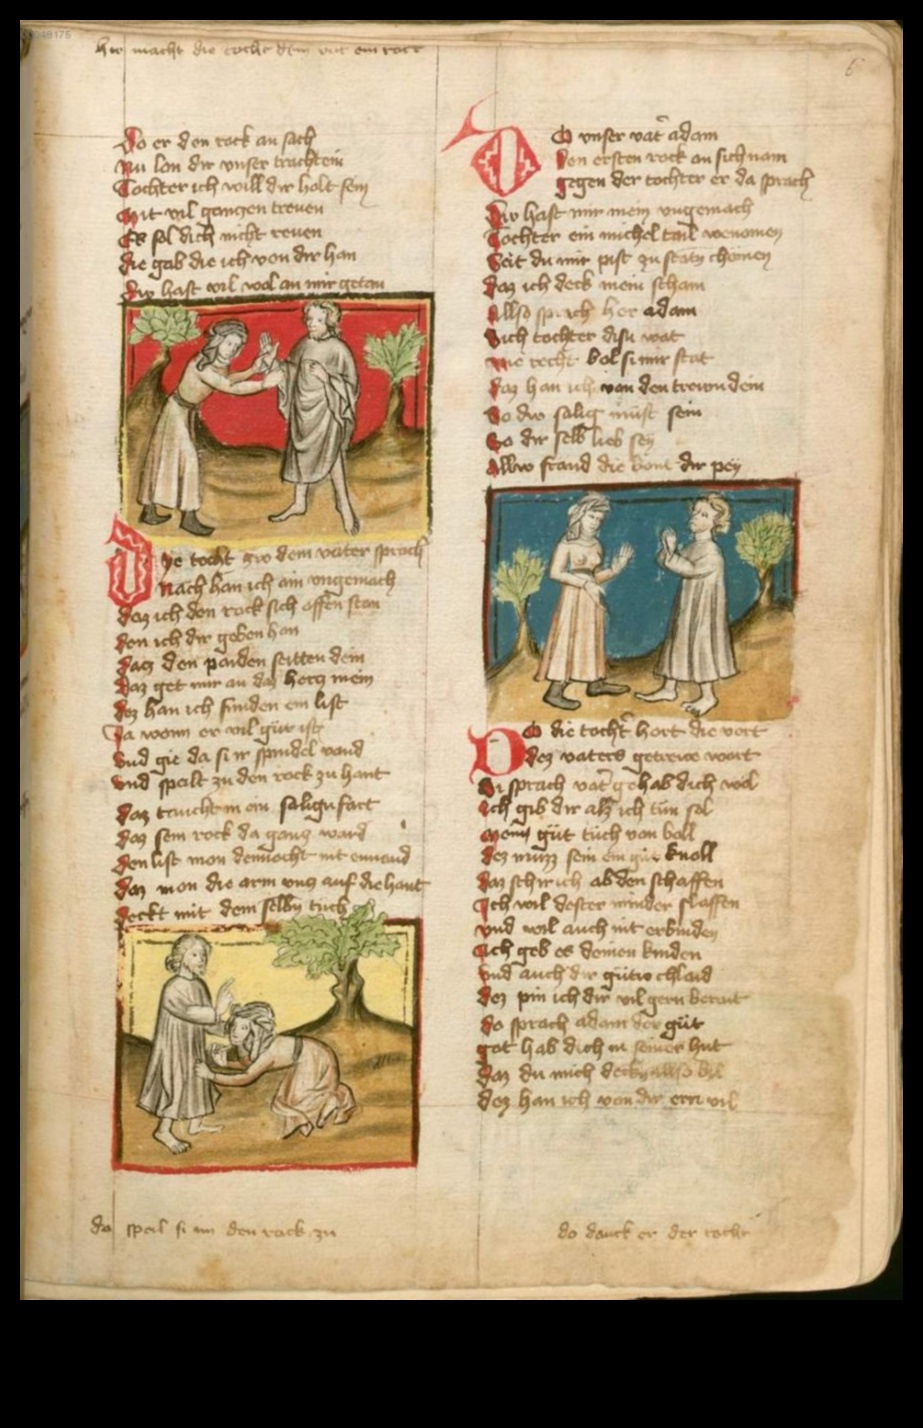 hie macht die tocht dem vat ein rock
6
Do er den rock an sach
Nu lon dir unser trachtein
Tochter ich will dir holt sein
Mit vil ganczen treuen
Es sol dich nicht reuen
die gab die ich von dir han
dw hast vil wol an mir getan
Dye tocht zw dem vater sprach
Nach han ich ain ungemach
daz ich den rock sich offen stan
den ich dir geben han
dacz den paiden seitten dein
daz get mir an daz hercz mein
dez han ich funden ein list
Ja wenn er vil güt ist
und gie da si ir spindel vand
und speilt zu den rock zu hant
daz truichtein ein
daz sein rock da gancz ward
den list mon dennocht nit envand
daz mon die arm uncz auf die hant
deckt mit dem selbn tuch
da speil si im den rock zu
DO unser vat adam
den ersten rock an sich nam
gegen der tochter er da sprach
Dw hast mir mein ungemach
Tochter ein michel tail wenomen
Seit du mir pist zu statn chomen
daz ich deck mein scham
Allso sprach her adam
Sich tochter disu wat
wie recht wol si mir stat
daz han ich von den trewn dein
So dw salig müst sein
So dir selb lieb sey
Allwo stand die dir pey
DO die tocht hort die wort
dez vaters getrewe wort
Si sprach vat gehab dich wol
Ich gib dir alz ich tün sol
Mein güt tüch von woll
dez muzz sein ein güt knoll
daz schir ich ab den schaffen
Ich wil dester minder slaffen
und wil auch nit erwinden
Ich geb es deinen kinden
und auch dir gütew chlaid
dez pin ich dir vil gern berait
do sprach adam der güt
got hab dich in seiner hut
daz du mich deckst allso vil
dez han ich von dir eren vil
do danck er der tocht